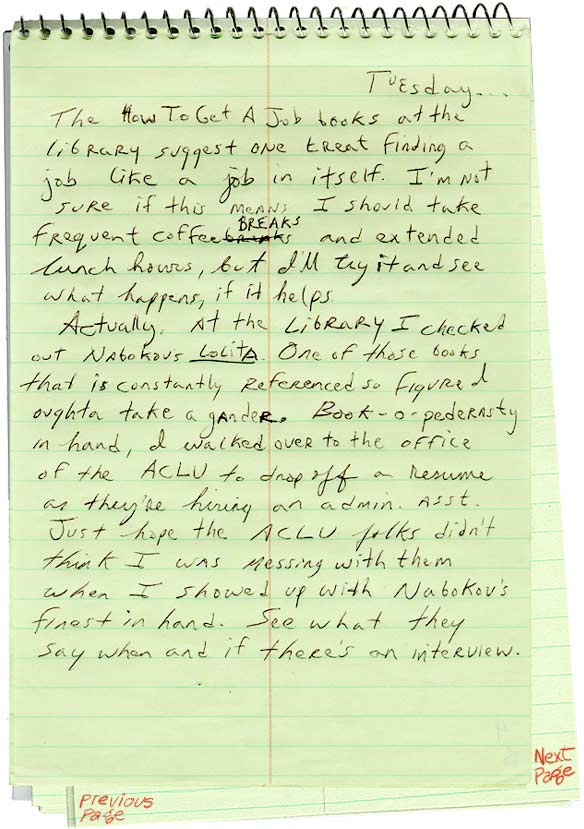 Tuesday...
The How To Get A Job books at the
library suggest one treat finding a
job like a job in itself. I'm not
sure if this means I should take
BREAKS
frequent coffee breaks and extended
lunch hours, but I'll try it and see
what happens, if it helps.
Actually, At the Library I checked
out Nabokovs Lolita. One of those books
that is constantly referenced so figure I
oughta take a gander. Book-o-pederasty
in hand, I walked over to the office
of the ACLU to drop off a resume
as they're hiring an admin. asst.
Just hope the ACLU folks didn't
think I was messing with them
when I showed up with Nabokov's
finest in hand. See what they
say when and if there's an interview.
Next
Page
Previous
Page